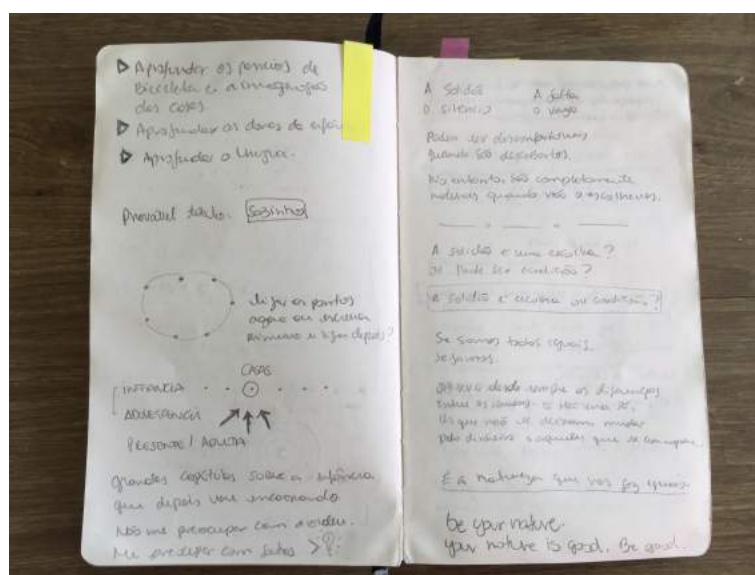 Aprofundar os passeios de
Bicicleta e a imaginação
das casas.
Aprofundar as dores de
Aprofundar a língua.
Provável título: Sozinha
ligar os pontos
agora ou escrever
primeiro e ligar depois?
CASAS
INFÂNCIA
ADOLESCÊNCIA
PRESENTE / ADULTA
grandes capítulos sobre a infância
que depois vou encaixando
Não me preocupar com a ordem.
Me preocupar com
A solidão
A falta
O silêncio
O vazio
Podem ser desconfortáveis
quando são
No entanto, são completamente
quando nós os escolhemos.
A solidão é uma escolha?
Ou pode ser condição?
A solidão é escolha ou condição?
Se somos todos iguais,
desde sempre as diferenças
entre os
os que não se deixam mudar
pelo dinheiro e aqueles que se
É a natureza que nos faz iguais
be your nature.
your nature is good. Be good.